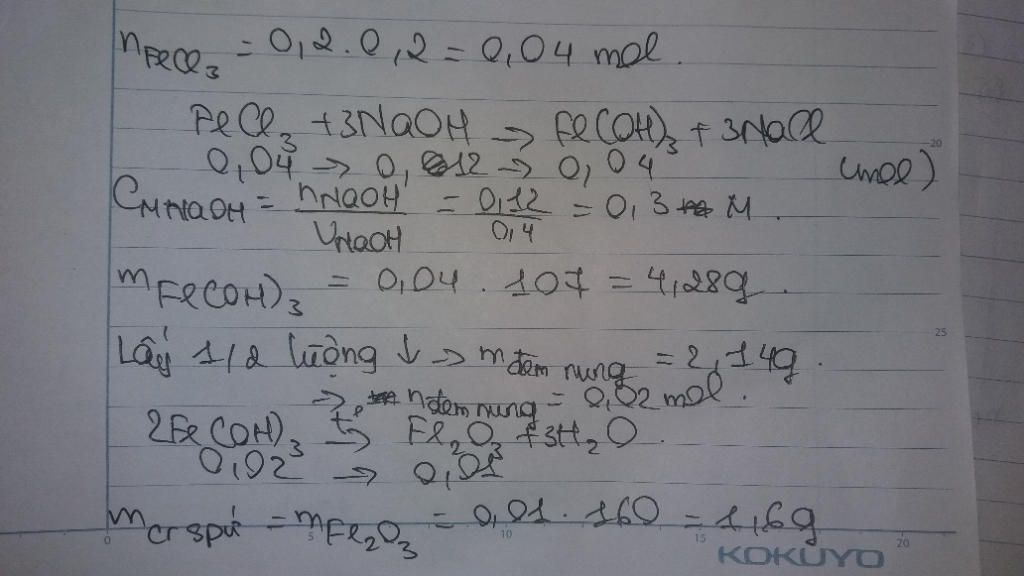 nFeCl3 = 0,2.0,2 = 0,04 mol.
FeCl3 + 3NaOH → Fe(OH)3 + 3NaCl
20
0,04 → 0,12 → 0,04 (mol)
CM NaOH = nNaOH / VNaOH = 0,12 / 0,4 = 0,3 M.
mFe(OH)3 = 0,04 . 107 = 4,28g.
25
Lấy 1/2 lượng ↓ → m đem nung = 2,14g.
→ n đem nung = 0,02 mol.
2Fe(OH)3 t° → Fe2O3 + 3H2O.
0,02 → 0,01
m cr spứ = mFe2O3 = 0,01 . 160 = 1,6g
0 5 10 15 20
KOKUYO